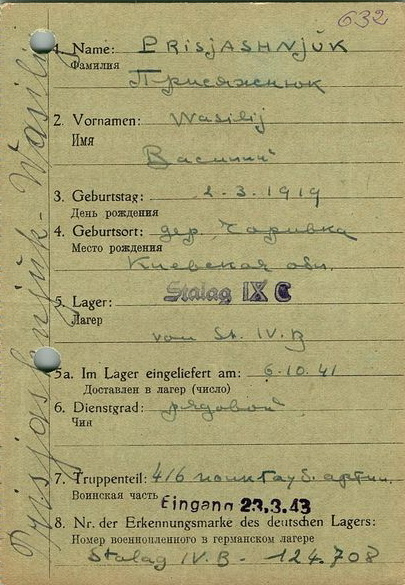 632
1. Name: PRISJASHNJUK
Фамилия
Присяжнюк
2. Vornamen: Wasilij
Имя
Василий
3. Geburtstag: 2.3.1919
День рождения
4. Geburtsort: дер.
Место рождения
Киевская обл.
5. Lager: Stalag IX C
Лагерь
von St. IV. B
5a. Im Lager eingeliefert am: 6.10.41
Доставлен в лагерь (число)
6. Dienstgrad: рядовой
Чин
7. Truppenteil: 416
Воинская часть
Eingang 23.3.43
8. Nr. der Erkennungsmarke des deutschen Lagers:
Номер военнопленного в германском лагере
Stalag IV. B - 124.708
Prisjashnjuk-Wasilij